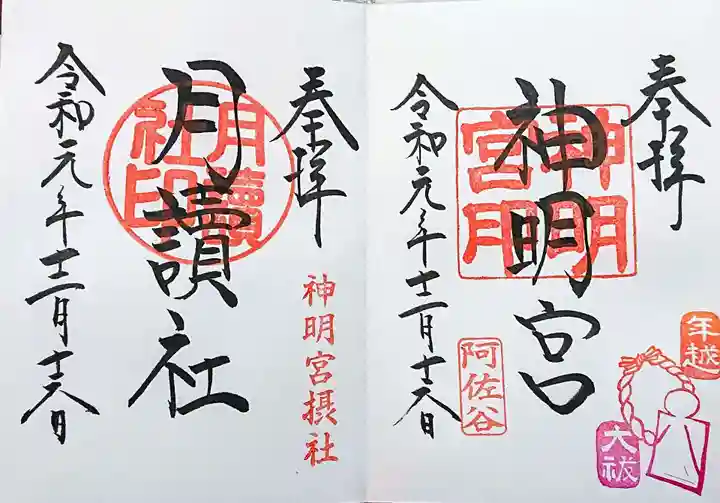 奉拝
神明宮
神明宮
令和元年十二月十六日
阿佐谷
年越
大祓
奉拝
月讀社
月讀社印
神明宮摂社
令和元年十二月十六日